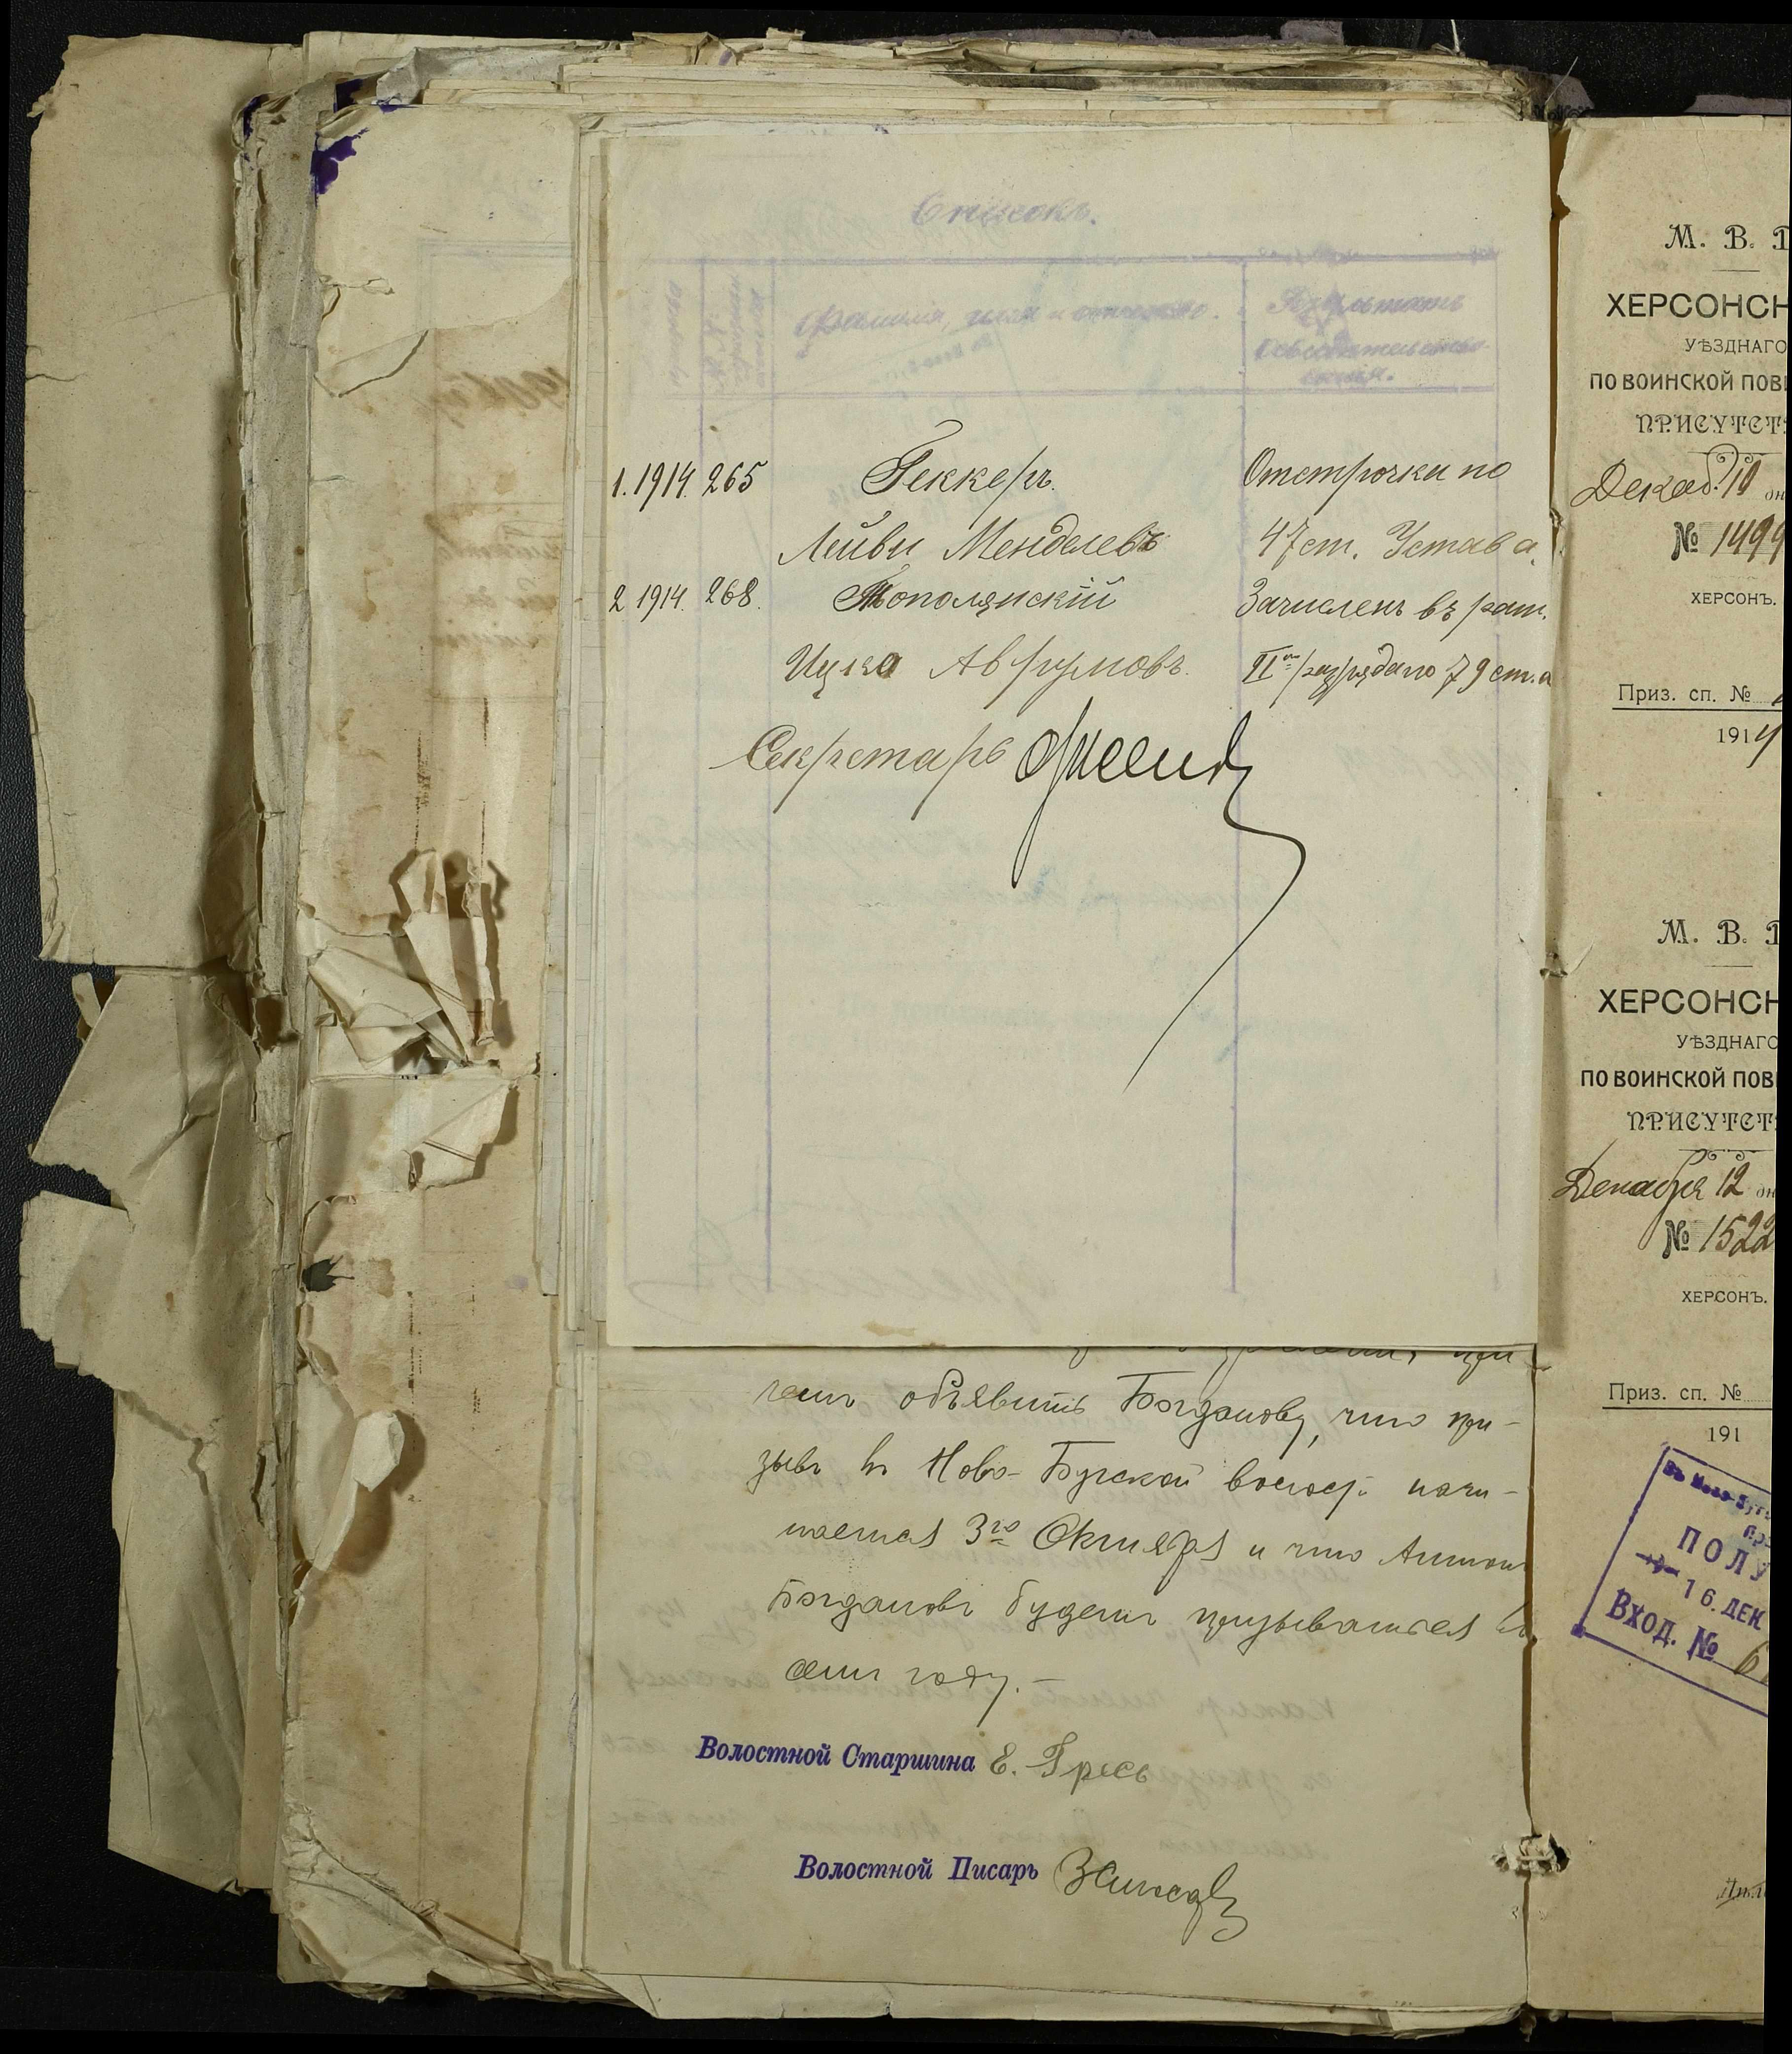 Списокъ.
Фамилія, имя и отчество.
Результатъ
освидѣтельство-
ванія.
1. 1914. 265 Геккеръ. Отсрочки по
Лейви Менделевъ 47 ст. Устава.
2 1914. 268. Тополянскій Зачисленъ въ рат.
Ицко Аврумовъ. II разряда по 79 ст. а
Секретарь
чемъ объявить Богданову, что при-
зывъ въ Ново-Бугской волости начи-
нается 3го Октября и что Антонъ
Богдановъ будетъ призываться въ
семъ году.-
Волостной Старшина Е. Гресь
Волостной Писарь
М. В.
ХЕРСОНС
УѢЗДНАГО
ПО ВОИНСКОЙ ПОВ
ПРИСУТСТ
Декаб. 10
№ 1499
ХЕРСОНЪ.
Приз. сп. №
1914
М. В.
ХЕРСОНС
УѢЗДНАГО
ПО ВОИНСКОЙ ПОВ
ПРИСУТСТ
Декабря 12
№ 1522
ХЕРСОНЪ.
Приз. сп. №
191
ПОЛУ
16. ДЕК
ВХОД. № 6